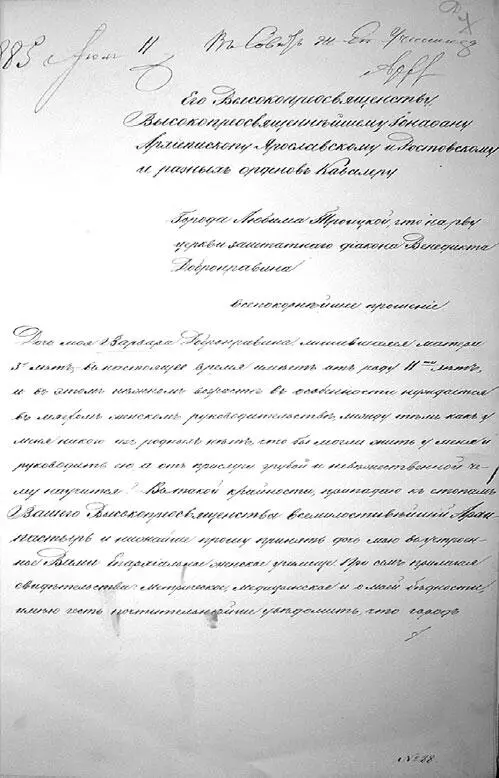 885 Июля 11 Въ Совѣтъ Ж. Еп. Училища
Его Высокопреосвященству
Высокопреосвященнѣйшему Іонаѳану
Архіепископу Ярославскому и Ростовскому
и разныхъ орденовъ Кавалеру
Города Любима Троицкой, что на рву
церкви заштатнаго діакона Венедикта
Добронравина
всепокорнѣйшее прошеніе
Дочь моя Варвара Добронравина лишившаяся матери
5 лѣтъ, въ настоящее время имѣетъ отъ роду 11 лѣтъ,
и въ этомъ нѣжномъ возрастѣ въ особенности нуждается
въ мягкомъ женскомъ руководительствѣ, между тѣмъ какъ у
меня никого изъ родныхъ нѣтъ, кто бы могли жить у меня и
руководить ею а отъ прислуги грубой и невѣжественной че-
му научится? Въ такой крайности, припадаю къ стопамъ
Вашего Высокопреосвященства всемилостивѣйшій Архи-
пастырь и нижайше прошу принять дочь мою во устроен-
ное Вами Епархіальное женское училище. При семъ прилагая
свидѣтельства: Метрическое, Медицинское и о моей бѣдности,
имѣю честь почтительнѣйше увѣдомить, что городъ
№ 28